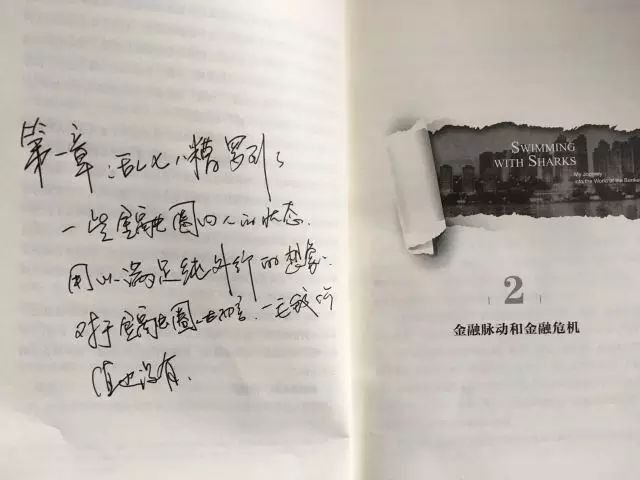 第一章:乱七八糟罗列了
一些金融圈内人的状态.
用以满足纯外行的想象.
对于金融圈也而言.一毛钱价
值也没有.
SWIMMING
WITH SHARKS
My Journey
into the World of the Bankers
2
金融脉动和金融危机